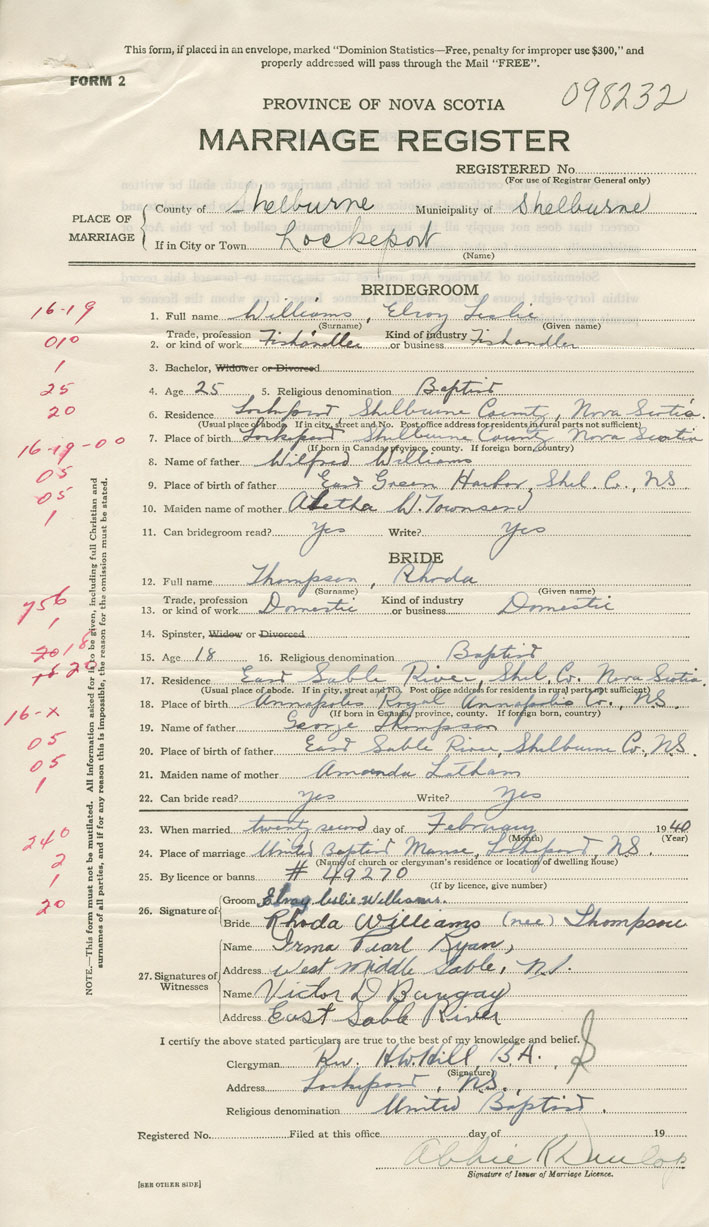 This form, if placed in an envelope, marked "Dominion Statistics—Free, penalty for improper use $300," and
properly addressed will pass through the Mail "FREE".
FORM 2
098232
PROVINCE OF NOVA SCOTIA
MARRIAGE REGISTER
REGISTERED No.
(For use of Registrar General only)
PLACE OF MARRIAGE
County of Shelburne Municipality of Shelburne
If in City or Town Lockeport
(Name)
BRIDEGROOM
16-19
1. Full name Williams, Elroy Leslie
(Surname) (Given name)
010
2. Trade, profession or kind of work Fishandler Kind of industry or business Fishandler
1
3. Bachelor, Widower or Divorced
25
4. Age 25 5. Religious denomination Baptist
20
6. Residence Lockeport Shelburne County, Nova Scotia.
(Usual place of abode. If in city, street and No. Post office address for residents in rural parts not sufficient)
16-19-00
7. Place of birth Lockeport Shelburne County Nova Scotia
(If born in Canada, province, county. If foreign born, country)
8. Name of father Wilfred Williams
05
9. Place of birth of father East Green Harbor, Shel. Co., N.S.
05
10. Maiden name of mother Aletha W. Townsend
1
11. Can bridegroom read? Yes Write? Yes
BRIDE
12. Full name Thompson, Rhoda
(Surname) (Given name)
756
13. Trade, profession or kind of work Domestic Kind of industry or business Domestic
1
14. Spinster, Widow or Divorced
2018
15. Age 18 16. Religious denomination Baptist
17. Residence East Sable River, Shel. Co. Nova Scotia.
(Usual place of abode. If in city, street and No. Post office address for residents in rural parts not sufficient)
16-x
18. Place of birth Annapolis Royal Annapolis Co., N.S.
(If born in Canada, province, county. If foreign born, country)
19. Name of father George Thompson
05
20. Place of birth of father East Sable River, Shelburne Co., N.S.
05
21. Maiden name of mother Amanda Latham
1
22. Can bride read? Yes Write? Yes
23. When married twenty second day of February 1940
(Month) (Year)
240
24. Place of marriage United Baptist Manse, Lockeport, N.S.
(Name of church or clergyman's residence or location of dwelling house)
2
25. By licence or banns # 49270
(If by licence, give number)
1
20
26. Signature of
Groom Elroy leslie Williams.
Bride Rhoda Williams (nee) Thompson
27. Signatures of Witnesses
Name Irma Pearl Ryan,
Address West Middle Sable, N.S.
Name Victor D Bungay
Address East Sable River
NOTE.—This form must not be mutilated. All information asked for is to be given, including full Christian and
surnames of all parties, and if for any reason this is impossible, the reason for the omission must be stated.
I certify the above stated particulars are true to the best of my knowledge and belief.
Clergyman Rev. H.W. Hill, B.A.
(Signature)
Address Lockeport, N.S.
Religious denomination United Baptist.
Registered No. Filed at this office day of 19
Abbie R Dunlop
Signature of Issuer of Marriage Licence.
[SEE OTHER SIDE]